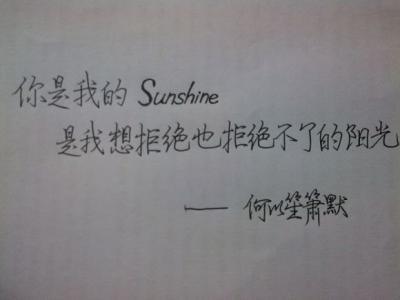 你是我的 Sunshine
是我想拒绝也拒绝不了的阳光
—— 何以笙箫默